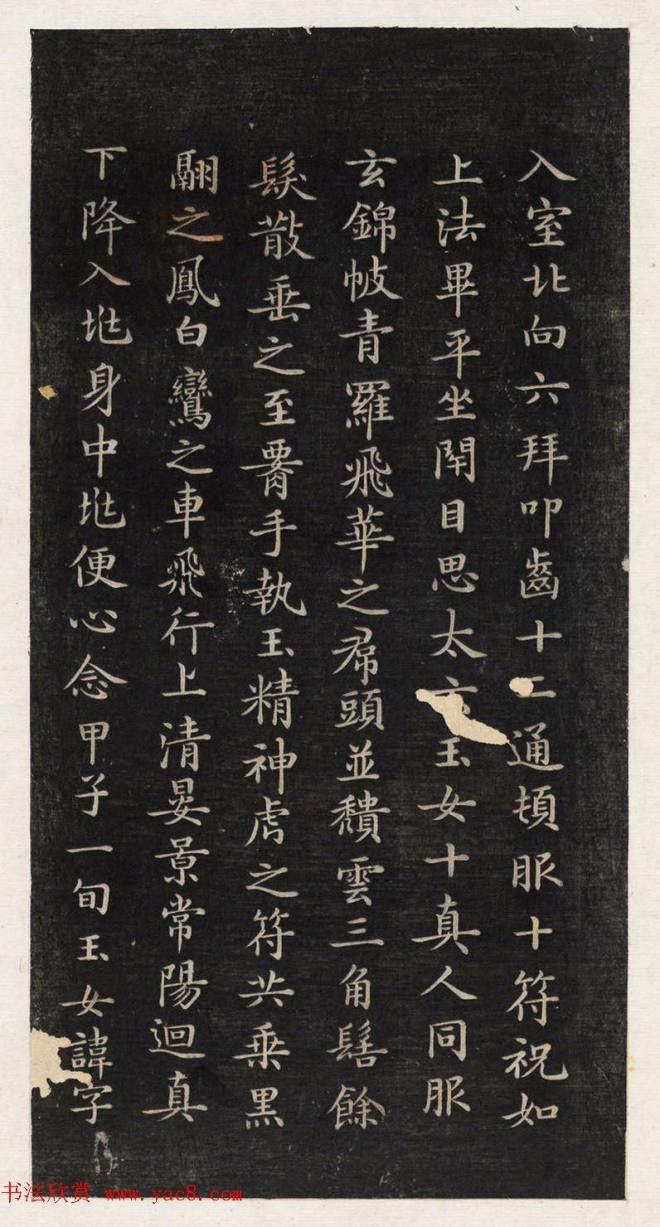 入室北向六拜叩齒十二通頓服十符祝如
上法畢平坐閇目思太玄玉女十真人同服
玄錦帔青羅飛華之帬頭並穨雲三角髻餘
髮散垂之至䏚手執玉精神虎之符共乗黒
翮之鳳白鸞之車飛行上清晏景常陽迴真
下降入兆身中兆便心念甲子一旬玉女諱字
书法欣赏 www.yac8.com